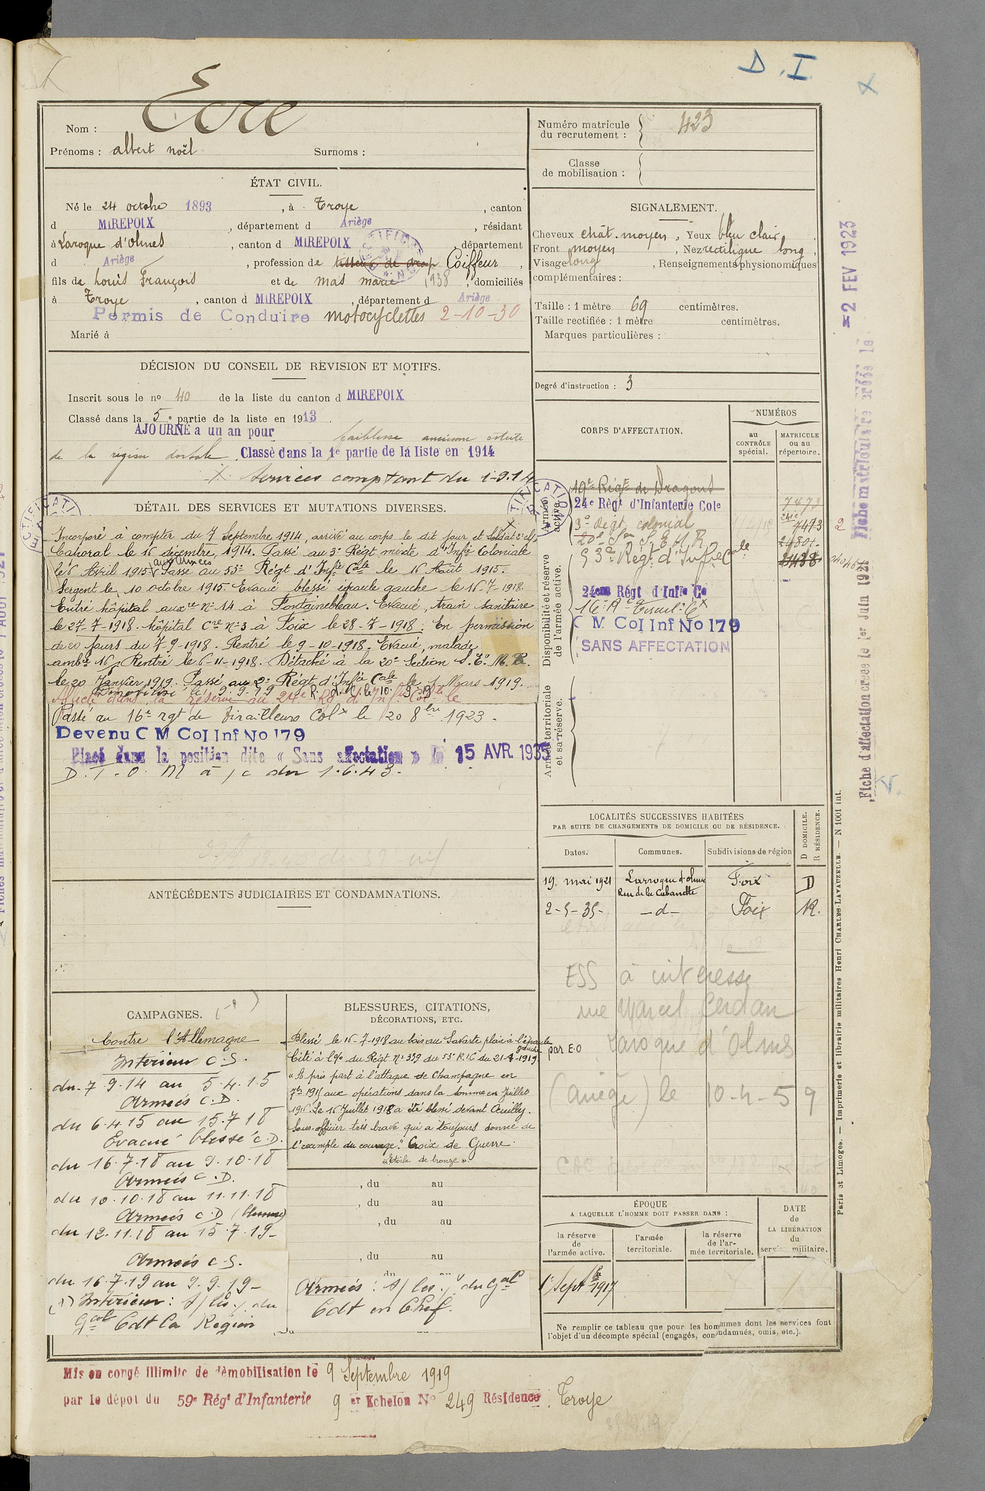 D.I
Nom : Eore
Prénoms : albert noël Surnoms :
Numéro matricule du recrutement : 423
Classe de mobilisation :
ÉTAT CIVIL.
Né le 24 octobre 1893, à Troye, canton
d MIREPOIX, département d Ariège, résidant
à Laroque d'Olmes, canton d MIREPOIX département
d Ariège, profession de Coiffeur,
fils de Louis François et de mas marie 1938, domiciliés
à Troye, canton d MIREPOIX, département d Ariège
Permis de Conduire motocyclettes 2-10-30
Marié à
SIGNALEMENT.
Cheveux chât. moyen, Yeux bleu clair,
Front moyen, Nez rectiligne long,
Visage long, Renseignements physionomiques
complémentaires :
Taille : 1 mètre 69 centimètres.
Taille rectifiée : 1 mètre centimètres.
Marques particulières :
Degré d'instruction : 3
DÉCISION DU CONSEIL DE RÉVISION ET MOTIFS.
Inscrit sous le nº 40 de la liste du canton d MIREPOIX
Classé dans la 5e partie de la liste en 1913.
AJOURNÉ a un an pour faiblesse ancienne
de la région Classé dans la 1e partie de la liste en 1914
Services comptant du 1-9-14
DÉTAIL DES SERVICES ET MUTATIONS DIVERSES.
Incorporé à compter du 7 Septembre 1914, arrivé au corps le dit jour et soldat 2e cl.
Caporal le 16 décembre 1914. Passé au 3e Régt mixte d'Infie Coloniale
le 6 Avril 1915 aux Armées Passé au 53e Régt d'Infie Cale le 16 Août 1915.
Sergent le 10 octobre 1915. Evacué blessé épaule gauche le 16-7-1918.
Entré hôpital auxre nº 14 à Fontainebleau. Evacué, train sanitaire
le 27-7-1918. hôpital Cre nº 3 à Foix le 28-7-1918. En permission
de 20 jours du 7-9-1918. Rentré le 9-10-1918. Evacué, malade
ambe 16. Rentré le 6-11-1918. Détaché à la 20e Section S.E.M.R.
le 20 Janvier 1919. Passé au 2e Régt d'Infie Cale le 1 Mars 1919.
Démobilisé le 9.9.19
Passé au 16e rgt de Tirailleurs Colx le 20 8bre 1923.
Devenu C M Col Inf No 179
Placé dans la position dite « Sans affectation » le 15 AVR. 1935
D.T.O.M à /c du 1.6.43.
CORPS D'AFFECTATION.
NUMÉROS
au CONTRÔLE spécial.
MATRICULE ou au répertoire.
Armée active.
19e Régt de Dragons
24e Régt d'Infanterie Cole
3e Régt colonial
53e Régt d'Infie Cale
7493
Disponibilité et réserve de l'armée active.
24ème Régt d'Infie Cle
C M Col Inf No 179
SANS AFFECTATION
Armée territoriale et sa réserve.
Fiche matriculaire créée le 2 FEV 1923
Fiche d'affectation créée le 1er Juin 1921
LOCALITÉS SUCCESSIVES HABITÉES
PAR SUITE DE CHANGEMENTS DE DOMICILE OU DE RÉSIDENCE.
D DOMICILE. R RÉSIDENCE.
Dates. Communes. Subdivisions de région
19. mai 1921 Larroque d'olmes Rue de la Cabanette Foix D
2-5-35- -d- Foix R.
ESS à intéressé
rue Marcel Cerdan
Laroque d'Olmes
(Ariège) le 10-4-59
ANTÉCÉDENTS JUDICIAIRES ET CONDAMNATIONS.
CAMPAGNES.
Contre l'Allemagne
Intérieur C.S.
du 7 9.14 au 5.4.15
Armées C.D.
du 6.4.15 au 15.7.18
Evacué blessé C.D.
du 16.7.18 au 9.10.18
Armées C.D.
du 10.10.18 au 11.11.18
Armées C.D
du 12.11.18 au 15.7.19-
Armées C.S.
du 16.7.19 au 9.9.19-
(1) Intérieur : s/ les / du
Gal Cdt la Région
BLESSURES, CITATIONS, DÉCORATIONS, ETC.
Blessé le 16-7-1918 au bois au Sabarte plaie à l'épaule gauche
Cité à l'o/ du Régt Nº 329 du 53e R.I.C du 21-4-1919 par E.O
"A pris part à l'attaque de Champagne en
7bre 1915 aux opérations dans la Somme en Juillet
1916. Le 16 Juillet 1918 a été blessé devant Ceuilly.
Sous-officier très brave qui a toujours donné de
l'exemple du courage." Croix de Guerre
"étoile de bronze".
, du au
, du au
, du au
, du au
Armées : s/ les / du Gal
Cdt en Chef.
ÉPOQUE
A LAQUELLE L'HOMME DOIT PASSER DANS :
la réserve de l'armée active.
l'armée territoriale.
la réserve de l'armée territoriale.
DATE de LA LIBÉRATION du service militaire.
1 Sept bre 1917
Ne remplir ce tableau que pour les hommes dont les services font
l'objet d'un décompte spécial (engagés, condamnés, omis, etc.).
Paris et Limoges. — Imprimerie et librairie militaires Henri CHARLES-LAVAUZELLE. — N 1001 int.
Mis en congé illimité de démobilisation le 9 Septembre 1919
par le dépôt du 59e Régt d'Infanterie 9 er Echelon Nº 249 Résidence Troye